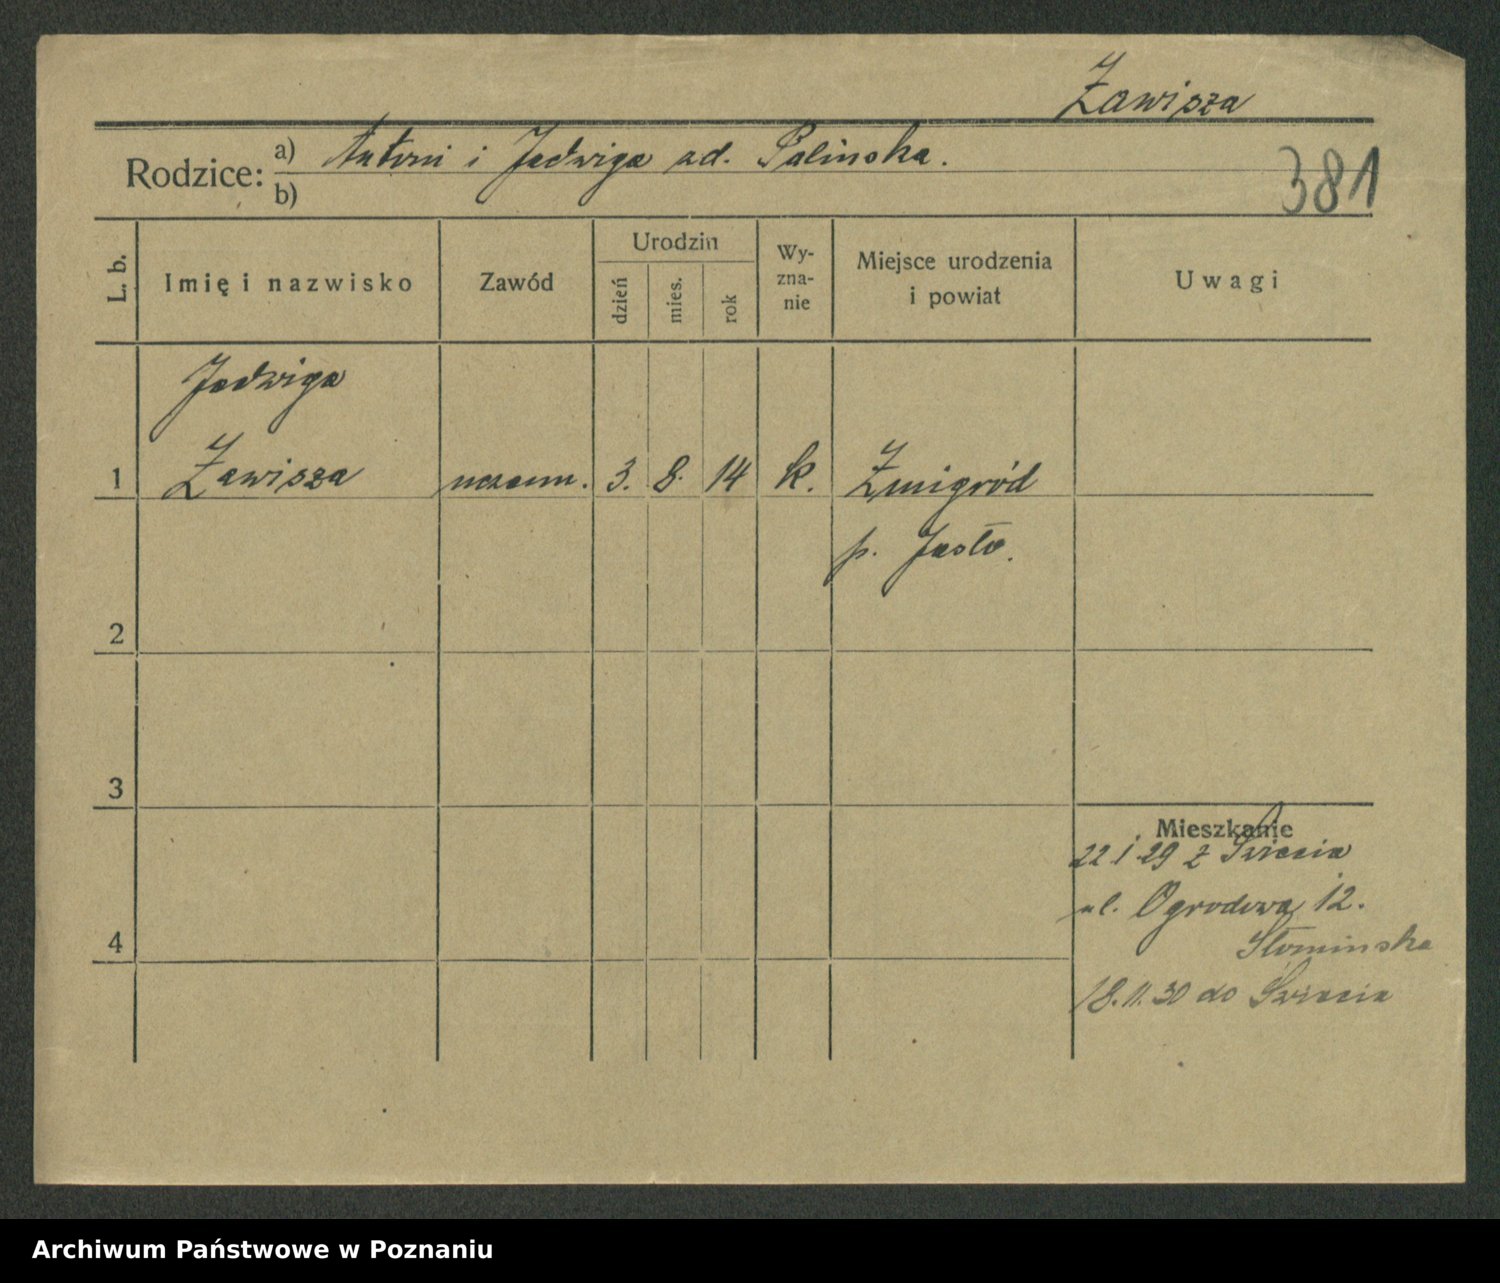 Zawisza
Rodzice: a) Antoni i Jadwiga zd. Palinska.
b)
381
L. b.
Imię i nazwisko
Zawód
Urodzin
dzień
mies.
rok
Wy-
zna-
nie
Miejsce urodzenia
i powiat
Uwagi
Jadwiga
1 Zawisza uczenn. 3. 8. 14 k. Żmigród
p. Jasło.
2
3
Mieszkanie
22 1 29 z Świecia
ul. Ogrodowa 12.
4
Słominska
18.11.30 do Świecia
Archiwum Państwowe w Poznaniu